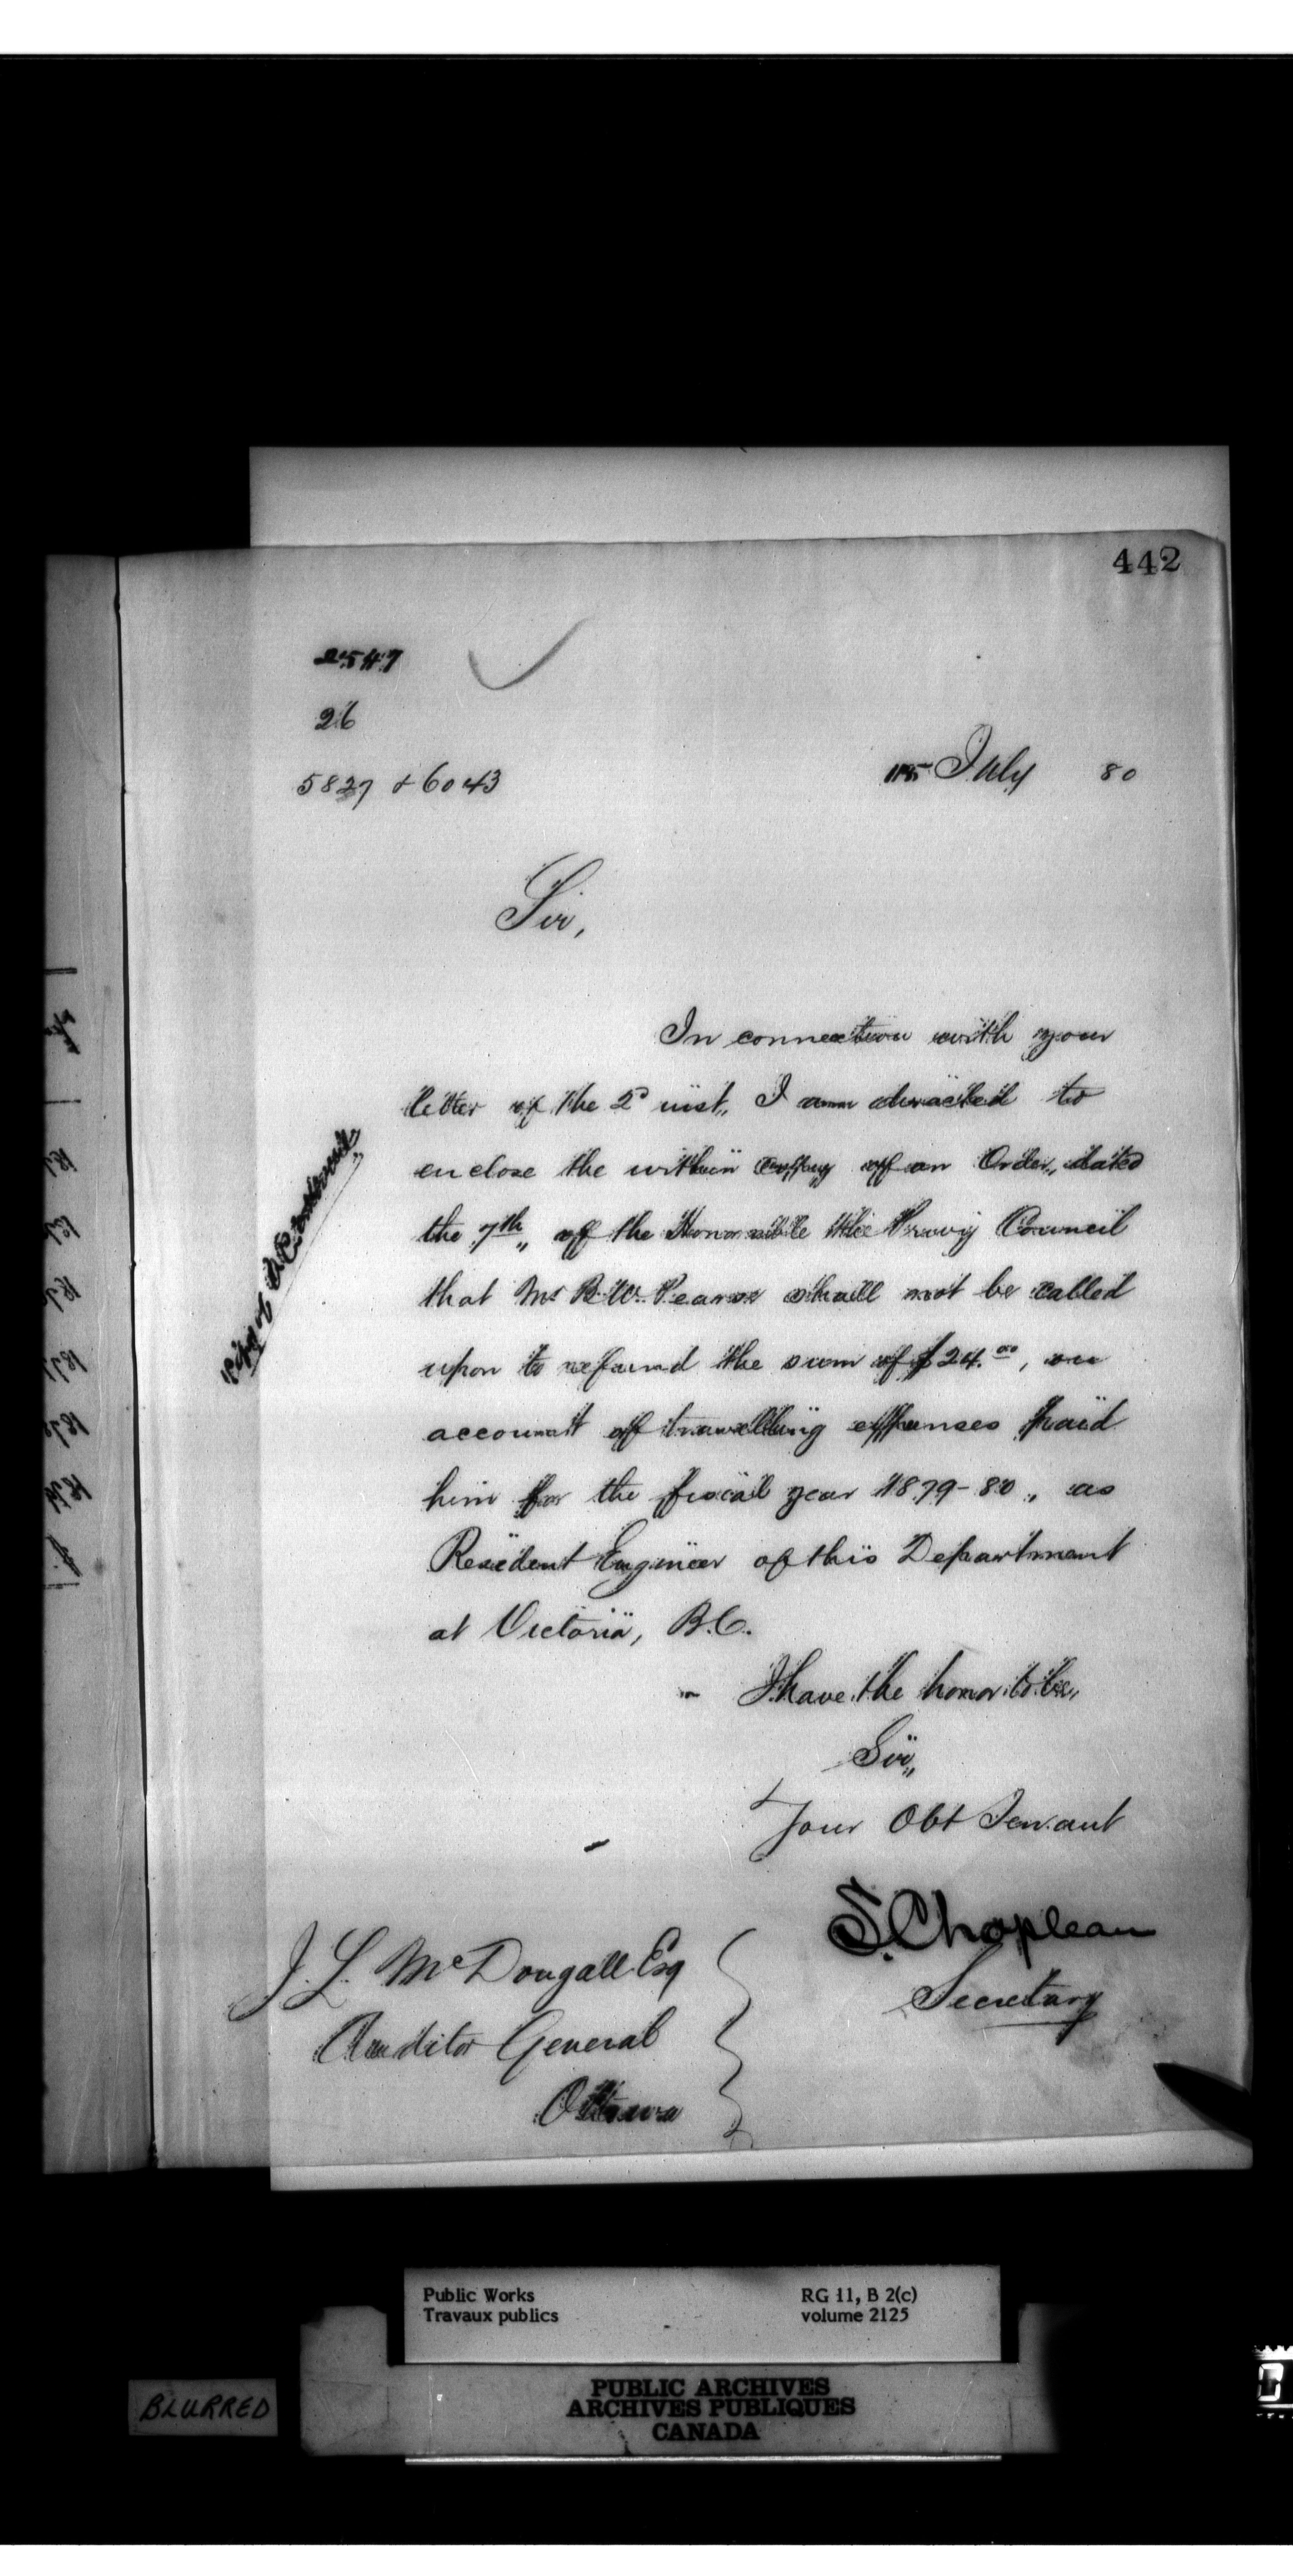 442
2547
26
5827 & 6043
15 July 80
Sir,
In connection with your
letter of the 2d inst, I am directed to
enclose the within copy of an Order, dated
the 7th, of the Honorable the Privy Council
that Mr B. W. Pearse shall not be called
upon to refund the sum of $24.00, on
account of travelling expenses paid
him for the fiscal year 1879-80, as
Resident Engineer of this Department
at Victoria, B.C.
I have the honor to be,
Sir,
Your Obt Servant
S. Chapleau
Secretary
J. L. McDougall Esq
Auditor General
Ottawa
Copy of
Public Works
Travaux publics
RG 11, B 2(c)
volume 2125
BLURRED
PUBLIC ARCHIVES
ARCHIVES PUBLIQUES
CANADA